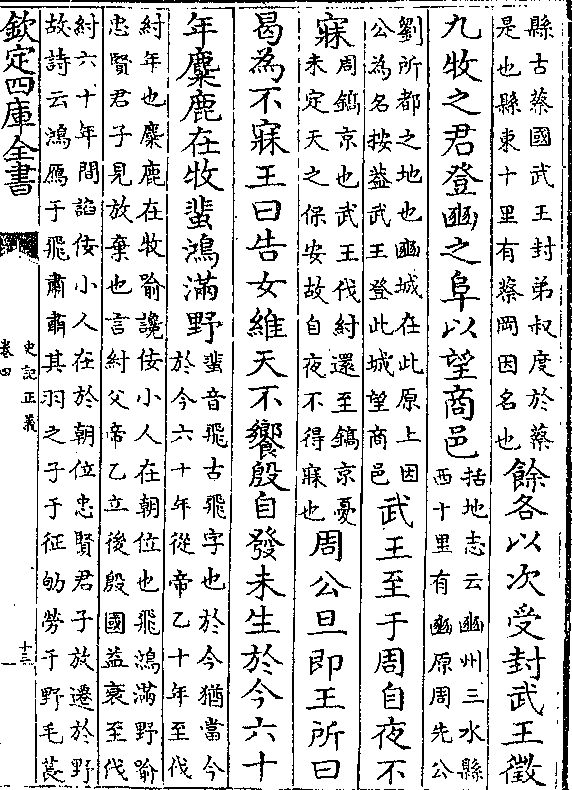 縣古蔡國武王封弟叔度於蔡
是也縣東十里有蔡岡因名也
餘各以次受封武王徵
九牧之君登豳之阜以望商邑
括地志云豳州三水縣
西十里有豳原周先公
劉所都之地也豳城在此原上因
公為名按蓋武王登此城望商邑
武王至于周自夜不
寐
周鎬京也武王伐紂還至鎬京憂
未定天之保安故自夜不得寐也
周公旦即王所曰
曷為不寐王曰告女維天不饗殷自發未生於今六十
年麋鹿在牧蜚鴻滿野
蜚音飛古飛字也於今猶當今
於今六十年從帝乙十年至伐
紂年也麋鹿在牧喻讒佞小人在朝位也飛鴻滿野喻
忠賢君子見放棄也言紂父帝乙立後殷國益衰至伐
紂六十年間諂佞小人在於朝位忠賢君子放遷於野
故詩云鴻鴈于飛肅肅其羽之子于征劬勞于野毛萇
欽定四庫全書
史記正義
卷四
十三